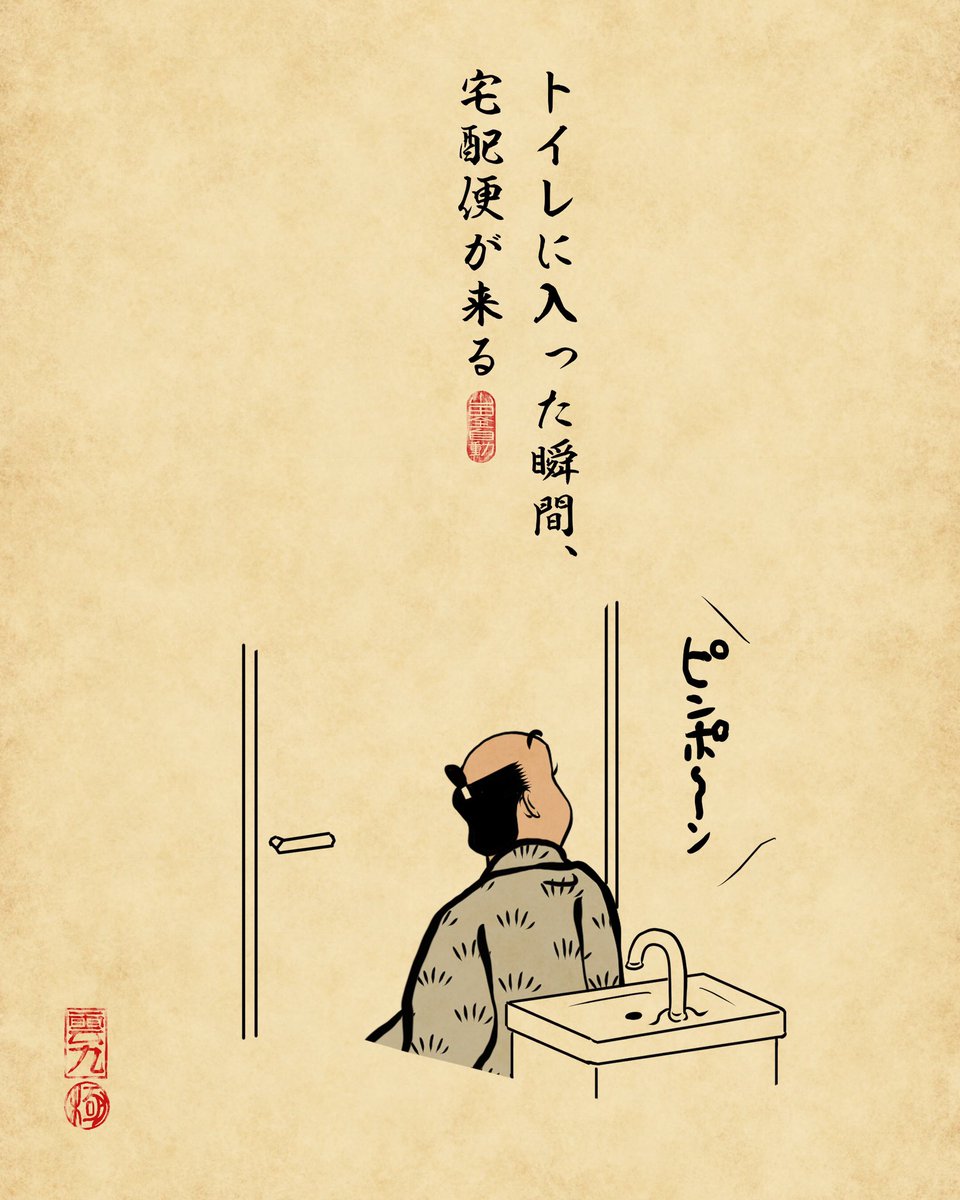 トイレに入った瞬間、
宅配便が来る
ピンポ〜〜ン